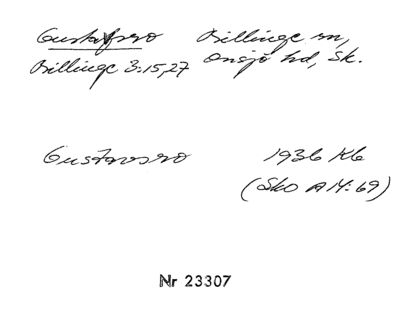 Gustafsro Billinge sn,
Billinge 3:15,27 Onsjö hd, Sk.
Gustavsro 1936 Kb
(Sko A14:69)
Nr 23307